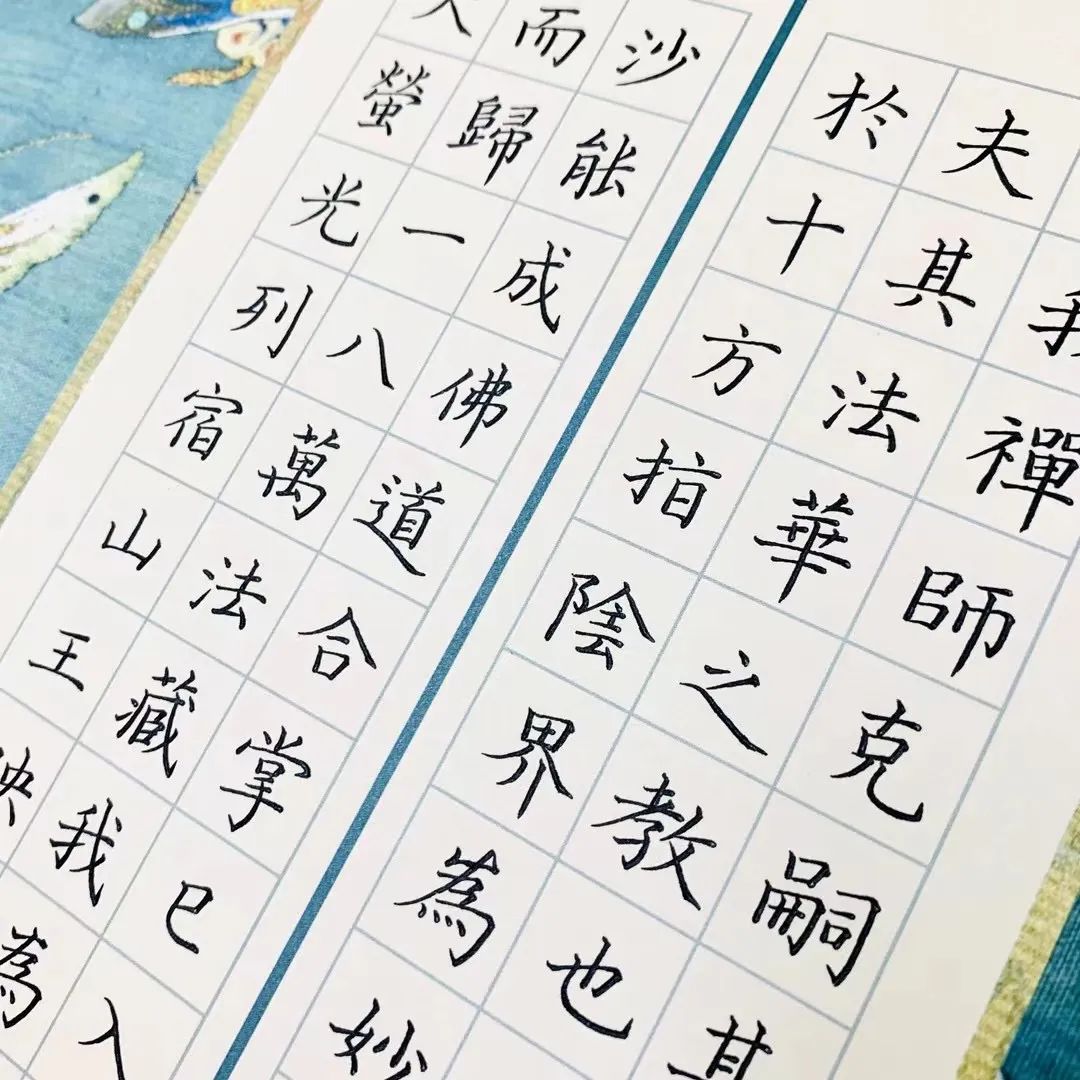 我禪師克嗣其
夫其法華之教也
於十方指陰界為妙
沙能成佛道合掌巳入
而歸一八萬法藏我為
螢光列宿山王